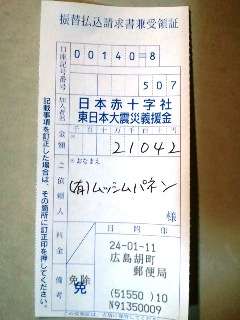 振替払込請求書兼受領証
口座記号番号
00140=8
507
加入者名
日本赤十字社
東日本大震災義援金
金額
千百十万千百十円
21042
ご依頼人
おなまえ
(有)ムッシムパネン
様
料金
日附印
24-01-11
広島胡町
郵便局
備考
免除
免
(51550)10
N91350009
記載事項を訂正した場合は、その箇所に訂正印を押してください。